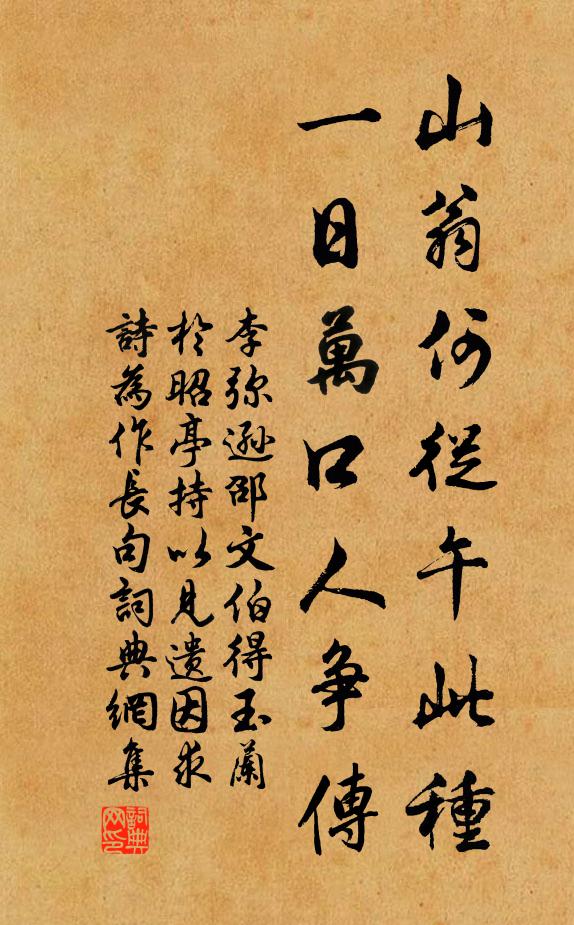 山翁何從午此種
一日萬口人爭傳
李弥遜邵文伯得玉蘭
於昭亭持以見遺因求
詩為作長句詞典網集
詞典网印